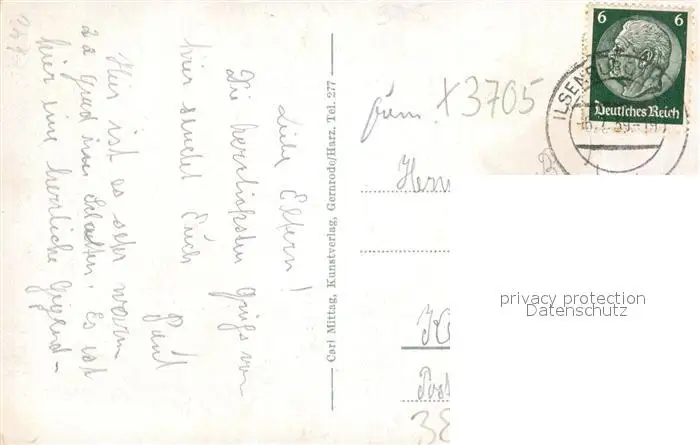 Liebe Eltern!
Die herrlichsten Grüße von
hier sendet Euch
Paul
Hier ist es sehr warm
22 Grad im Schatten. Es ist
hier eine herrliche Gegend-
Carl Mittag, Kunstverlag, Gernrode/Harz. Tel. 277
X3705
Post
6 6
Deutsches Reich
ILSENB
privacy protection
Datenschutz